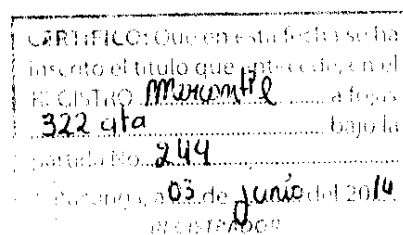 CERTIFICO: Que en esta fecha se ha
inscrito el titulo que antecede, en el
REGISTRO Mercantil a fojas
322 vta bajo la
partida No. 244
a 03 de junio del 2014
REGISTRADOR